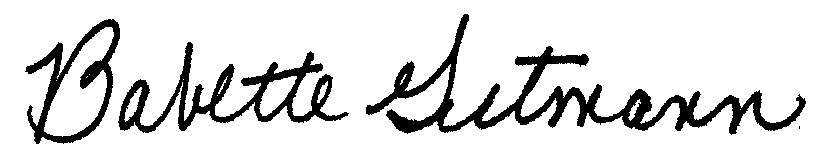 Babette Gutmann